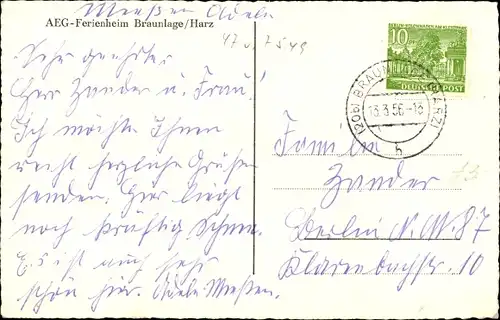 Meeßen Adele
AEG-Ferienheim Braunlage/Harz
Sehr geehrter
Herr Zander u. Frau!
Ich möchte Ihnen
recht herzliche Grüße
senden. Hier liegt
noch kräftig Schnee.
Es ist auch sehr
schön hier. Adele Meeßen.
10
DEUTSCHE POST
(20b) BRAUNLAGE (HARZ)
13.3.56-18
h
Familie
Zander
Berlin N.W. 87
Klarenbachstr. 10